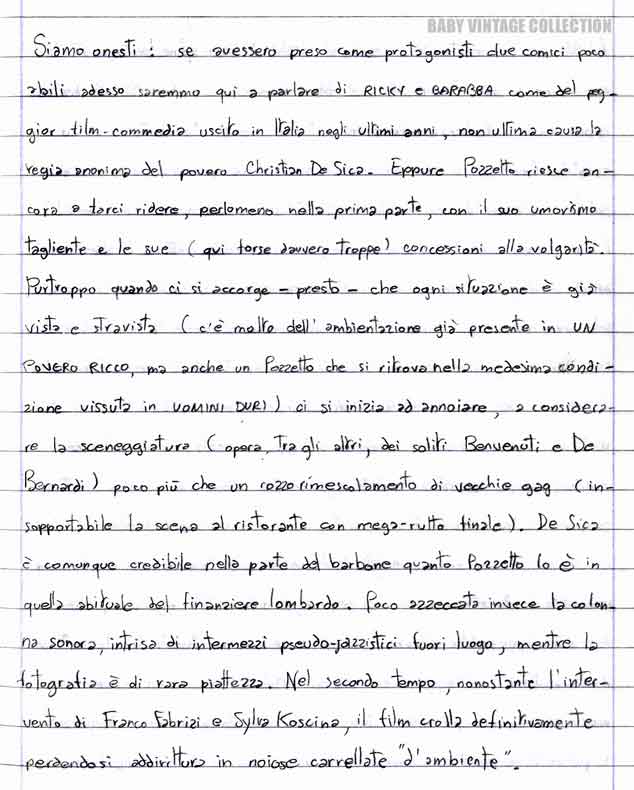 BABY VINTAGE COLLECTION
Siamo onesti: se avessero preso come protagonisti due comici poco
abili adesso saremmo qui a parlare di RICKY e BARABBA come del peg-
gior film-commedia uscito in Italia negli ultimi anni, non ultima causa la
regia anonima del povero Christian De Sica. Eppure Pozzetto riesce an-
cora a farci ridere, perlomeno nella prima parte, con il suo umorismo
tagliente e le sue (qui forse davvero troppe) concessioni alla volgarità.
Purtroppo quando ci si accorge - presto - che ogni situazione è già
vista e stravista (c'è molto dell'ambientazione già presente in UN
POVERO RICCO, ma anche un Pozzetto che si ritrova nella medesima condi-
zione vissuta in UOMINI DURI) ci si inizia ad annoiare, a considera-
re la sceneggiatura (opera, tra gli altri, dei soliti Benvenuti e De
Bernardi) poco più che un rozzo rimescolamento di vecchie gag (in-
sopportabile la scena al ristorante con mega-rutto finale). De Sica
è comunque credibile nella parte del barbone quanto Pozzetto lo è in
quella abituale del finanziere lombardo. Poco azzeccata invece la colon-
na sonora, intrisa di intermezzi pseudo-jazzistici fuori luogo, mentre la
fotografia è di rara piattezza. Nel secondo tempo, nonostante l'inter-
vento di Franco Fabrizi e Sylva Koscina, il film crolla definitivamente
perdendosi addirittura in noiose carrellate "d'ambiente".